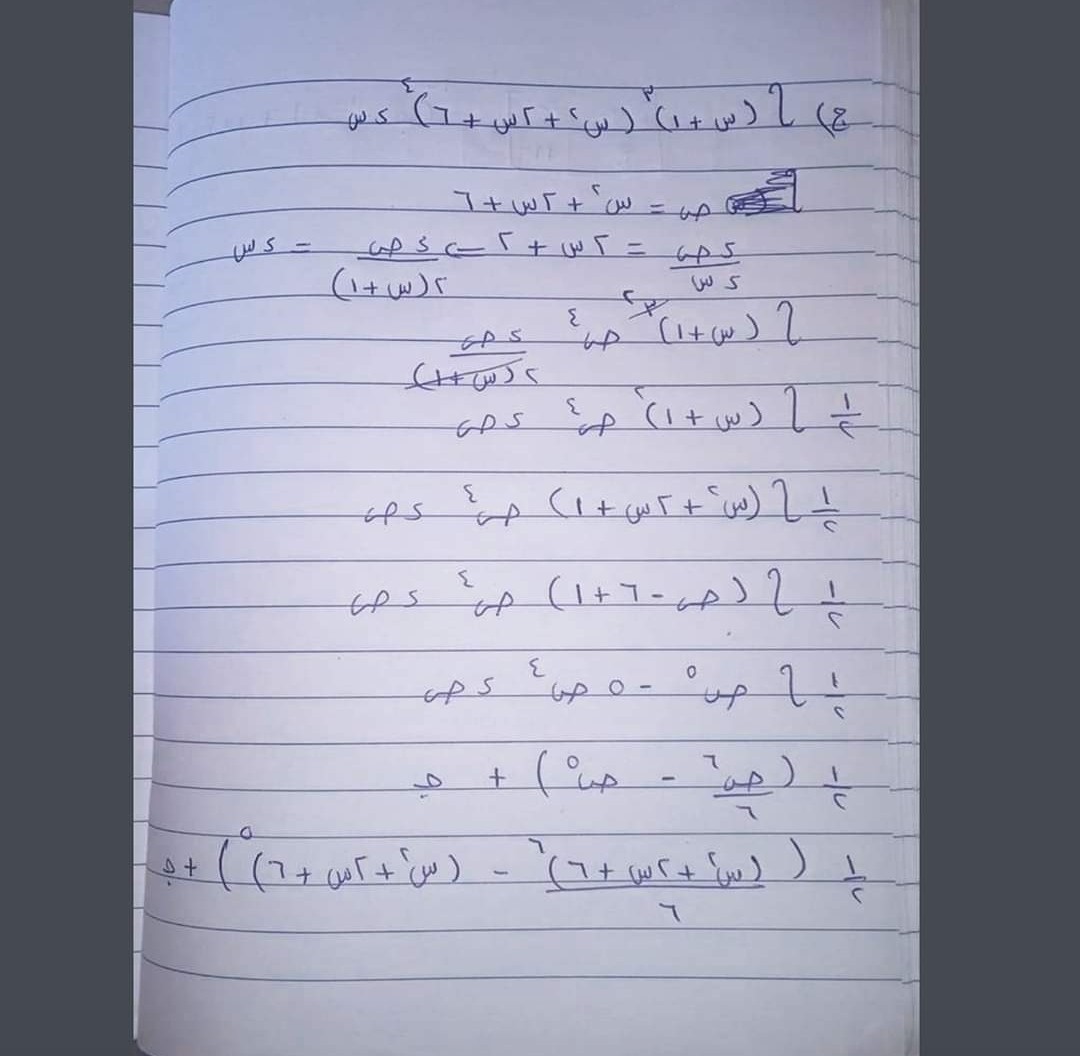 ج) ∫ (س + ١)^٣ (س^٢ + ٢س + ٦)^٤ ءس
ص = س^٢ + ٢س + ٦
ءص/ءس = ٢س + ٢ ⇐ ءص/٢(س+١) = ءس
∫ (س+١)^٢ ص^٤ ءص/٢(س+١)
١/٢ ∫ (س + ١)^٢ ص^٤ ءص
١/٢ ∫ (س^٢ + ٢س + ١) ص^٤ ءص
١/٢ ∫ (ص - ٦ + ١) ص^٤ ءص
١/٢ ∫ ص^٥ - ٥ ص^٤ ءص
١/٢ (ص^٦/٦ - ص^٥) + ث
١/٢ ((س^٢ + ٢س + ٦)^٦/٦ - (س^٢ + ٢س + ٦)^٥) + ث